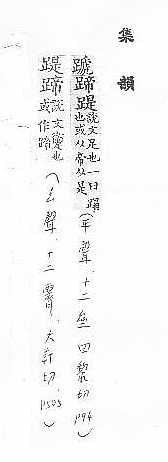 集韻
蹏蹄踶說文足也一曰躧也或从帝从是（平聲．十二齊．田黎切．P94）
踶蹄說文躗也或作蹄（去聲．十二霽．大計切．P505）